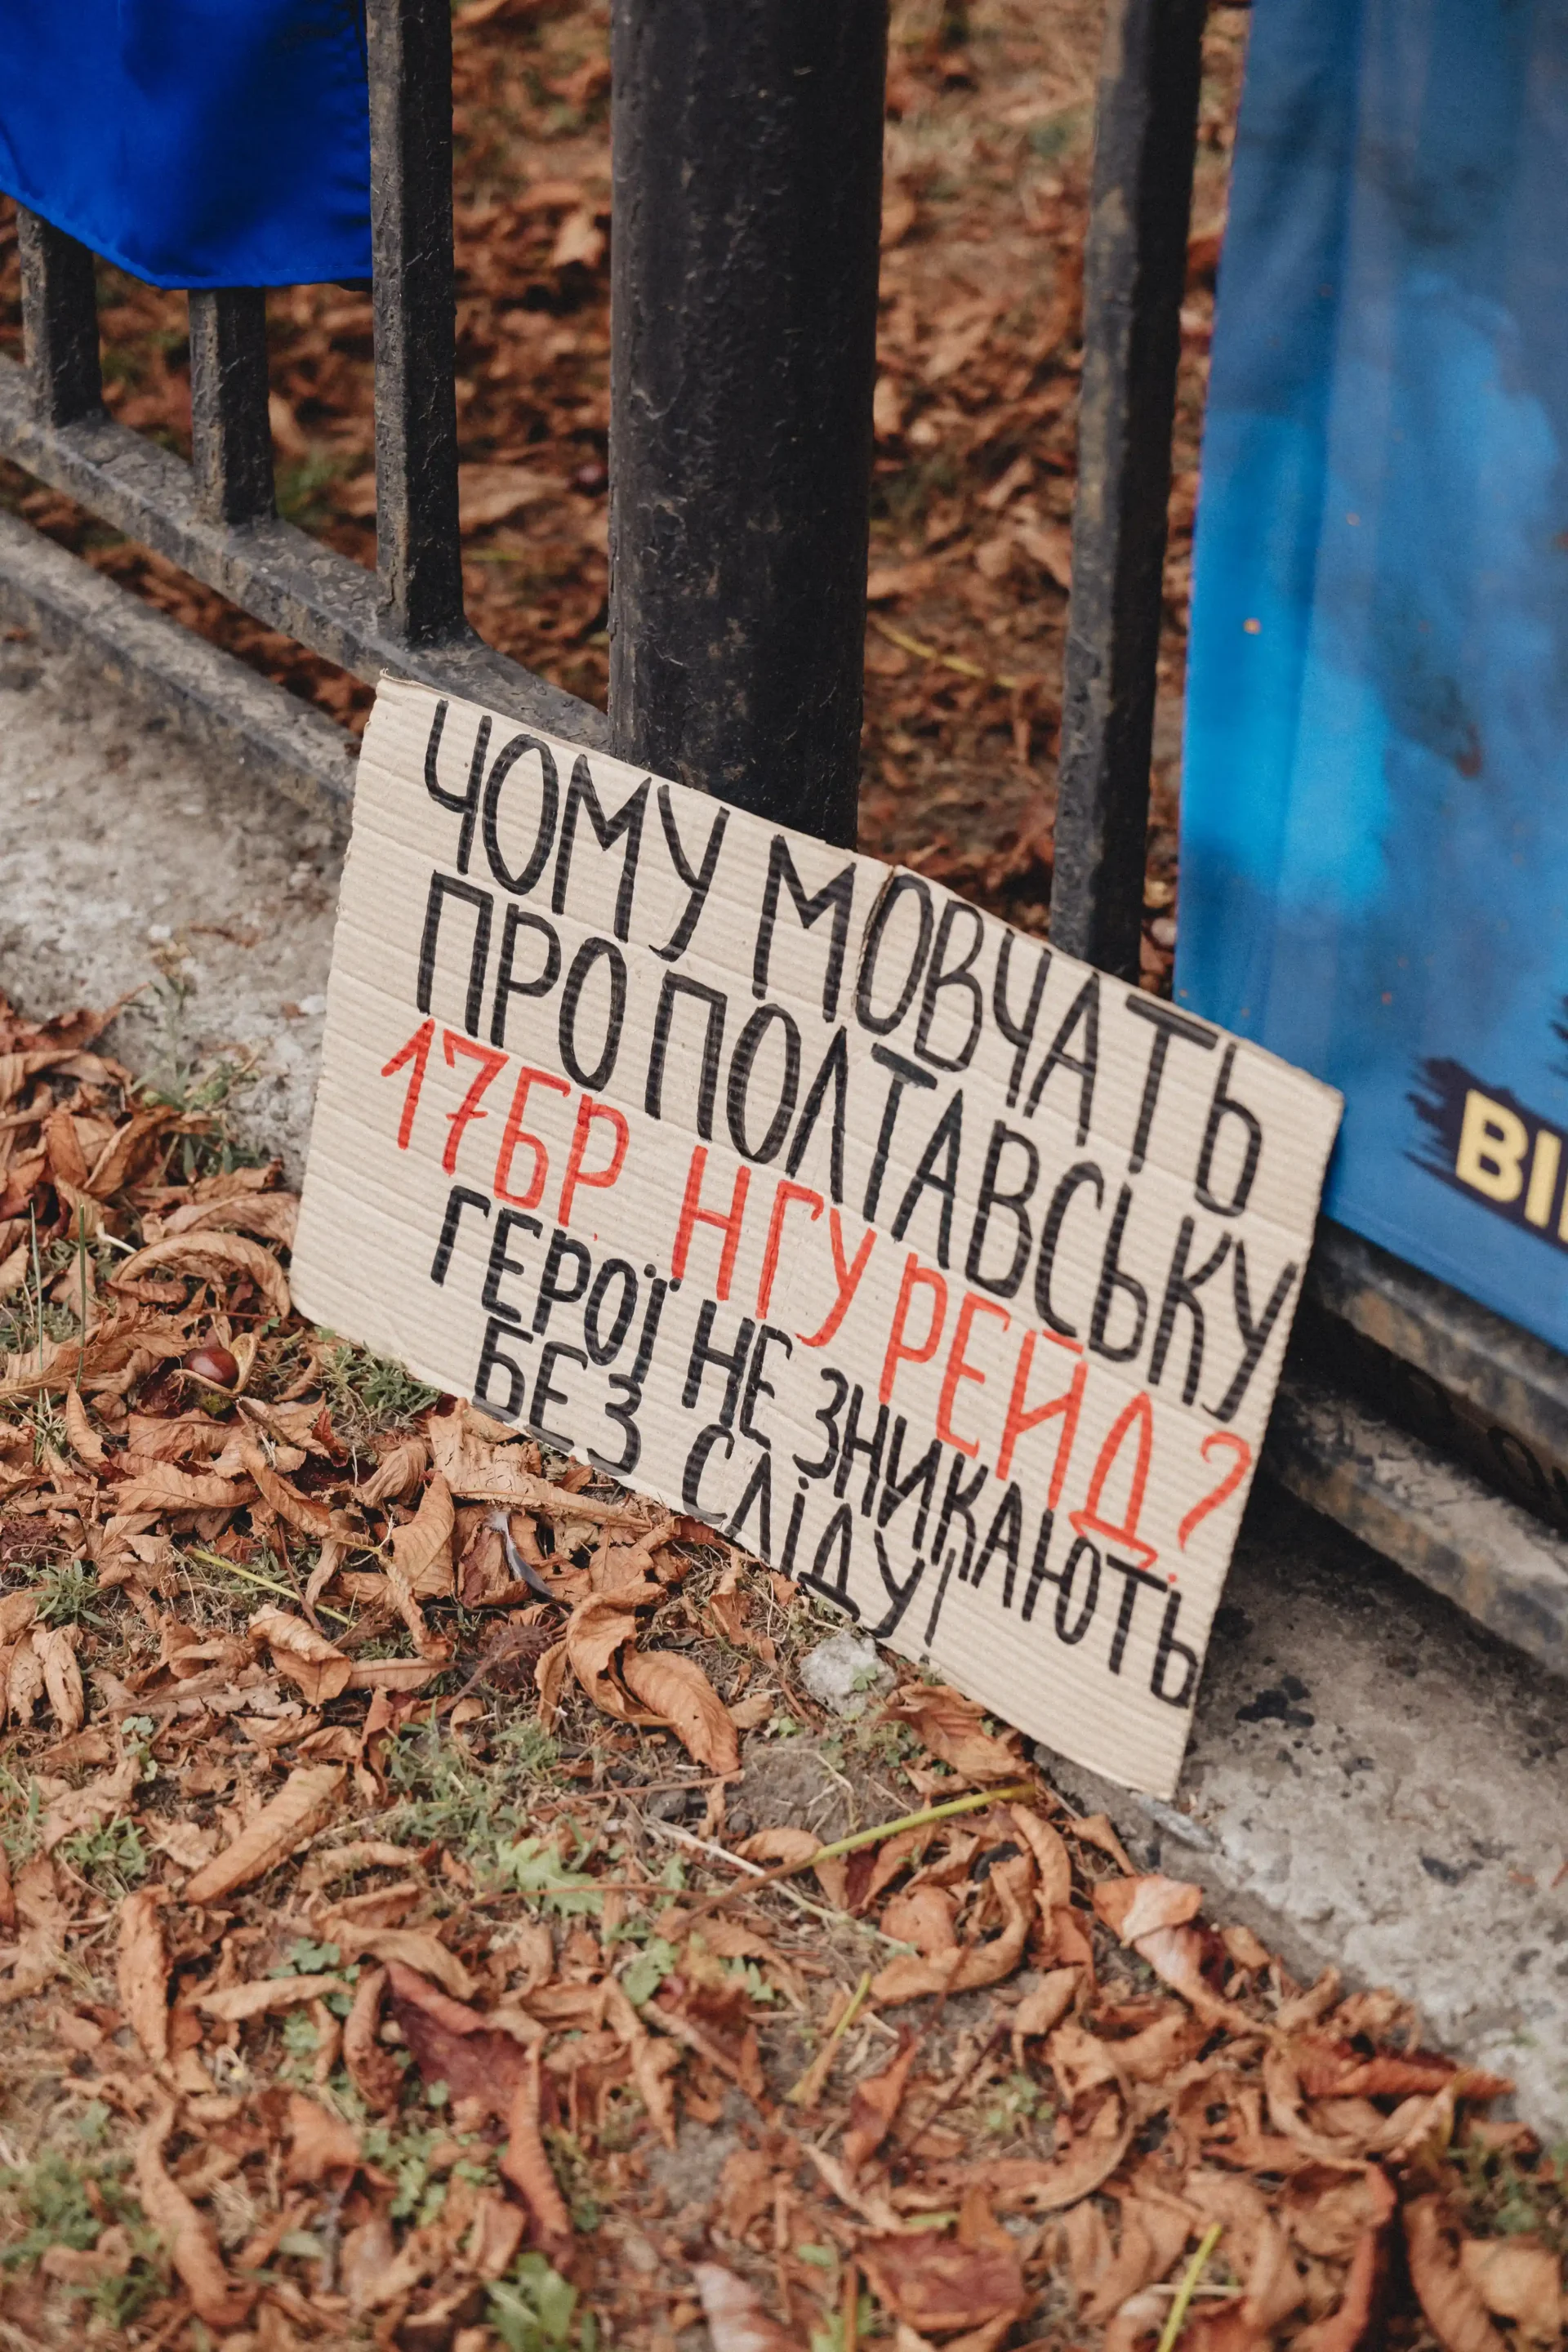 ЧОМУ МОВЧАТЬ
ПРО ПОЛТАВСЬКУ
17БР НГУ РЕЙД?
ГЕРОЇ НЕ ЗНИКАЮТЬ
БЕЗ СЛІДУ!